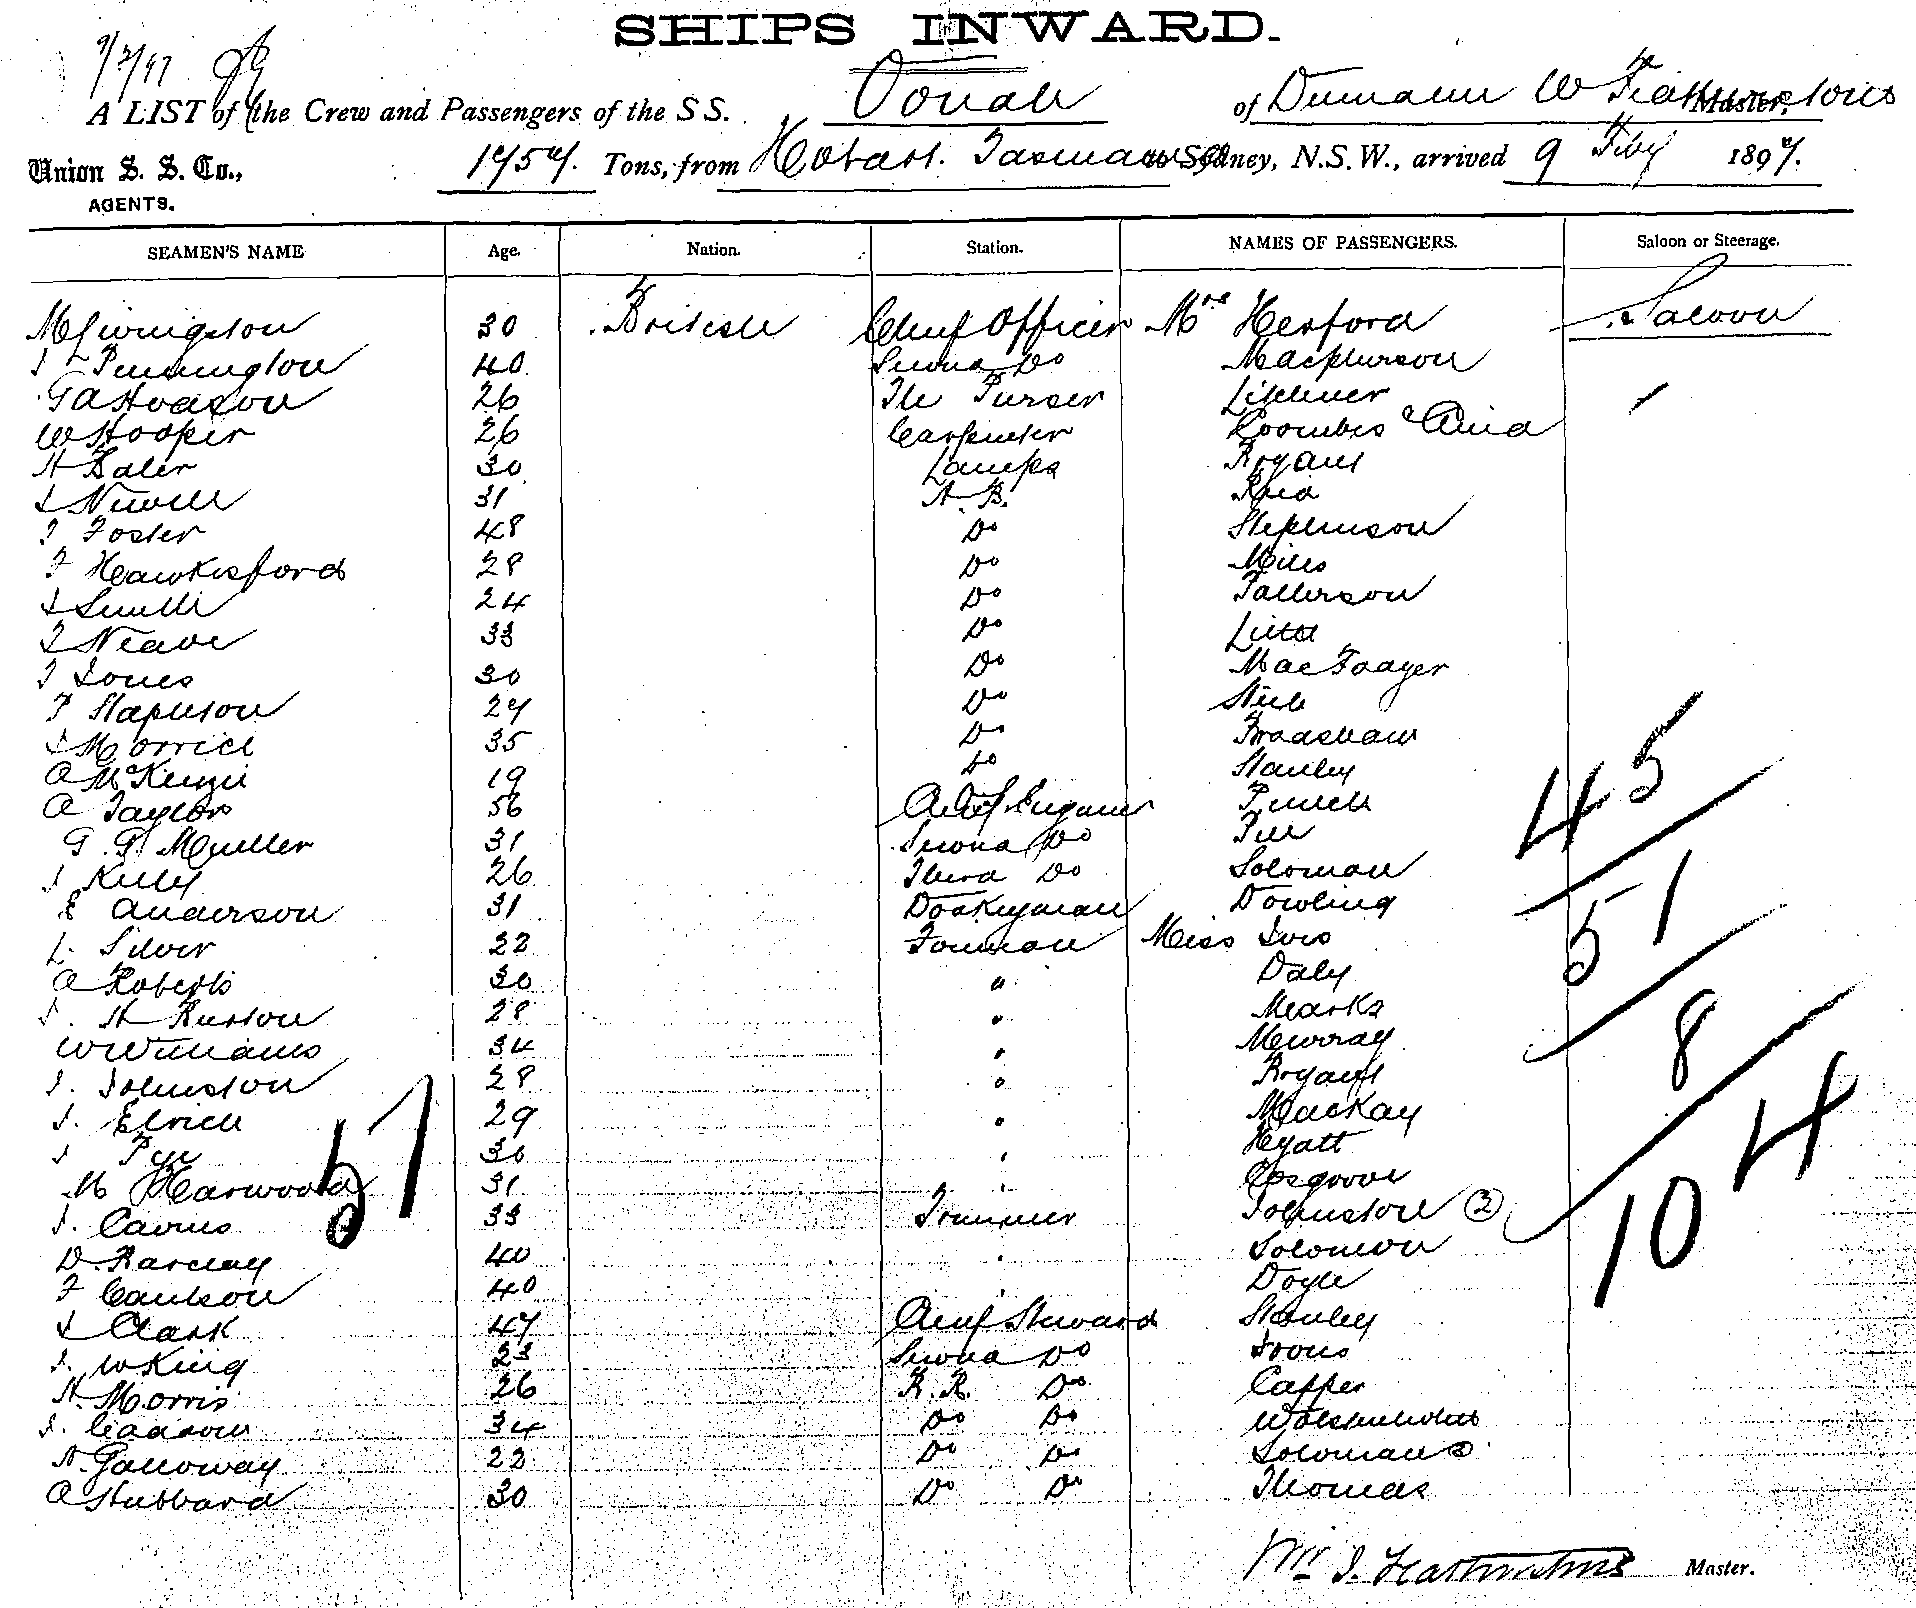 SHIPS INWARD.
9/2/97
A LIST of the Crew and Passengers of the S S. Oonah of Dunedin W Featherstone Master,
Union S. S. Co., 1757. Tons, from Hobart. Tasmania to Sydney, N.S.W., arrived 9 Feby 1897.
AGENTS.
SEAMEN'S NAME Age. Nation. Station. NAMES OF PASSENGERS. Saloon or Steerage.
M Livingston 30 British Chief Officer Mrs Hesford Saloon
Pennington 40 Second Do Macpherson
G A Hodson 26 The Purser
W Hooper 26 Carpenter Coombes & Child
H Baler 30 Lamps Bryant
J Newell 31 A.B. Reid
J Foster 48 Do Stephenson
F Hawkesford 28 Do Miles
J Smith 24 Do Patterson
J Neave 33 Do Little
J Jones 30 Do
P Stapleton 27 Do Steel
J Morrice 35 Do Bradshaw
A McKenzie 19 Do Stanley
A Taylor 56 Chief Engineer
G. P. Mueller 31 Second Do
J Kelly 26 Third Do Soloman
E Anderson 31 Donkeyman Dowling
L. Silver 22 Foreman Miss
A Roberts 30 " Daly
J. H Burton 28 " Mearks
W Williams 34 " Murray
J. Johnston 28 " Bryant
J. Elrick 29 " MacKay
J Pye 30 " Hyatt
M Harwood 31 " Cosgrove
J. Cairns 33 Trimmer Johnstone (2)
D Barclay 40 " Solomon
F Coulson 40 " Doyle
J Clark 47 Chief Steward Stanley
J. W King 23 Second Do
H. Morris 26 F. R. Do Capper
34 Do Do Wolstenholme
H. Galloway 22 Do Do Solomon 2
A Hubbard 30 Do Do Thomas
45
51
8
104
51
Wm J. Featherstone Master.